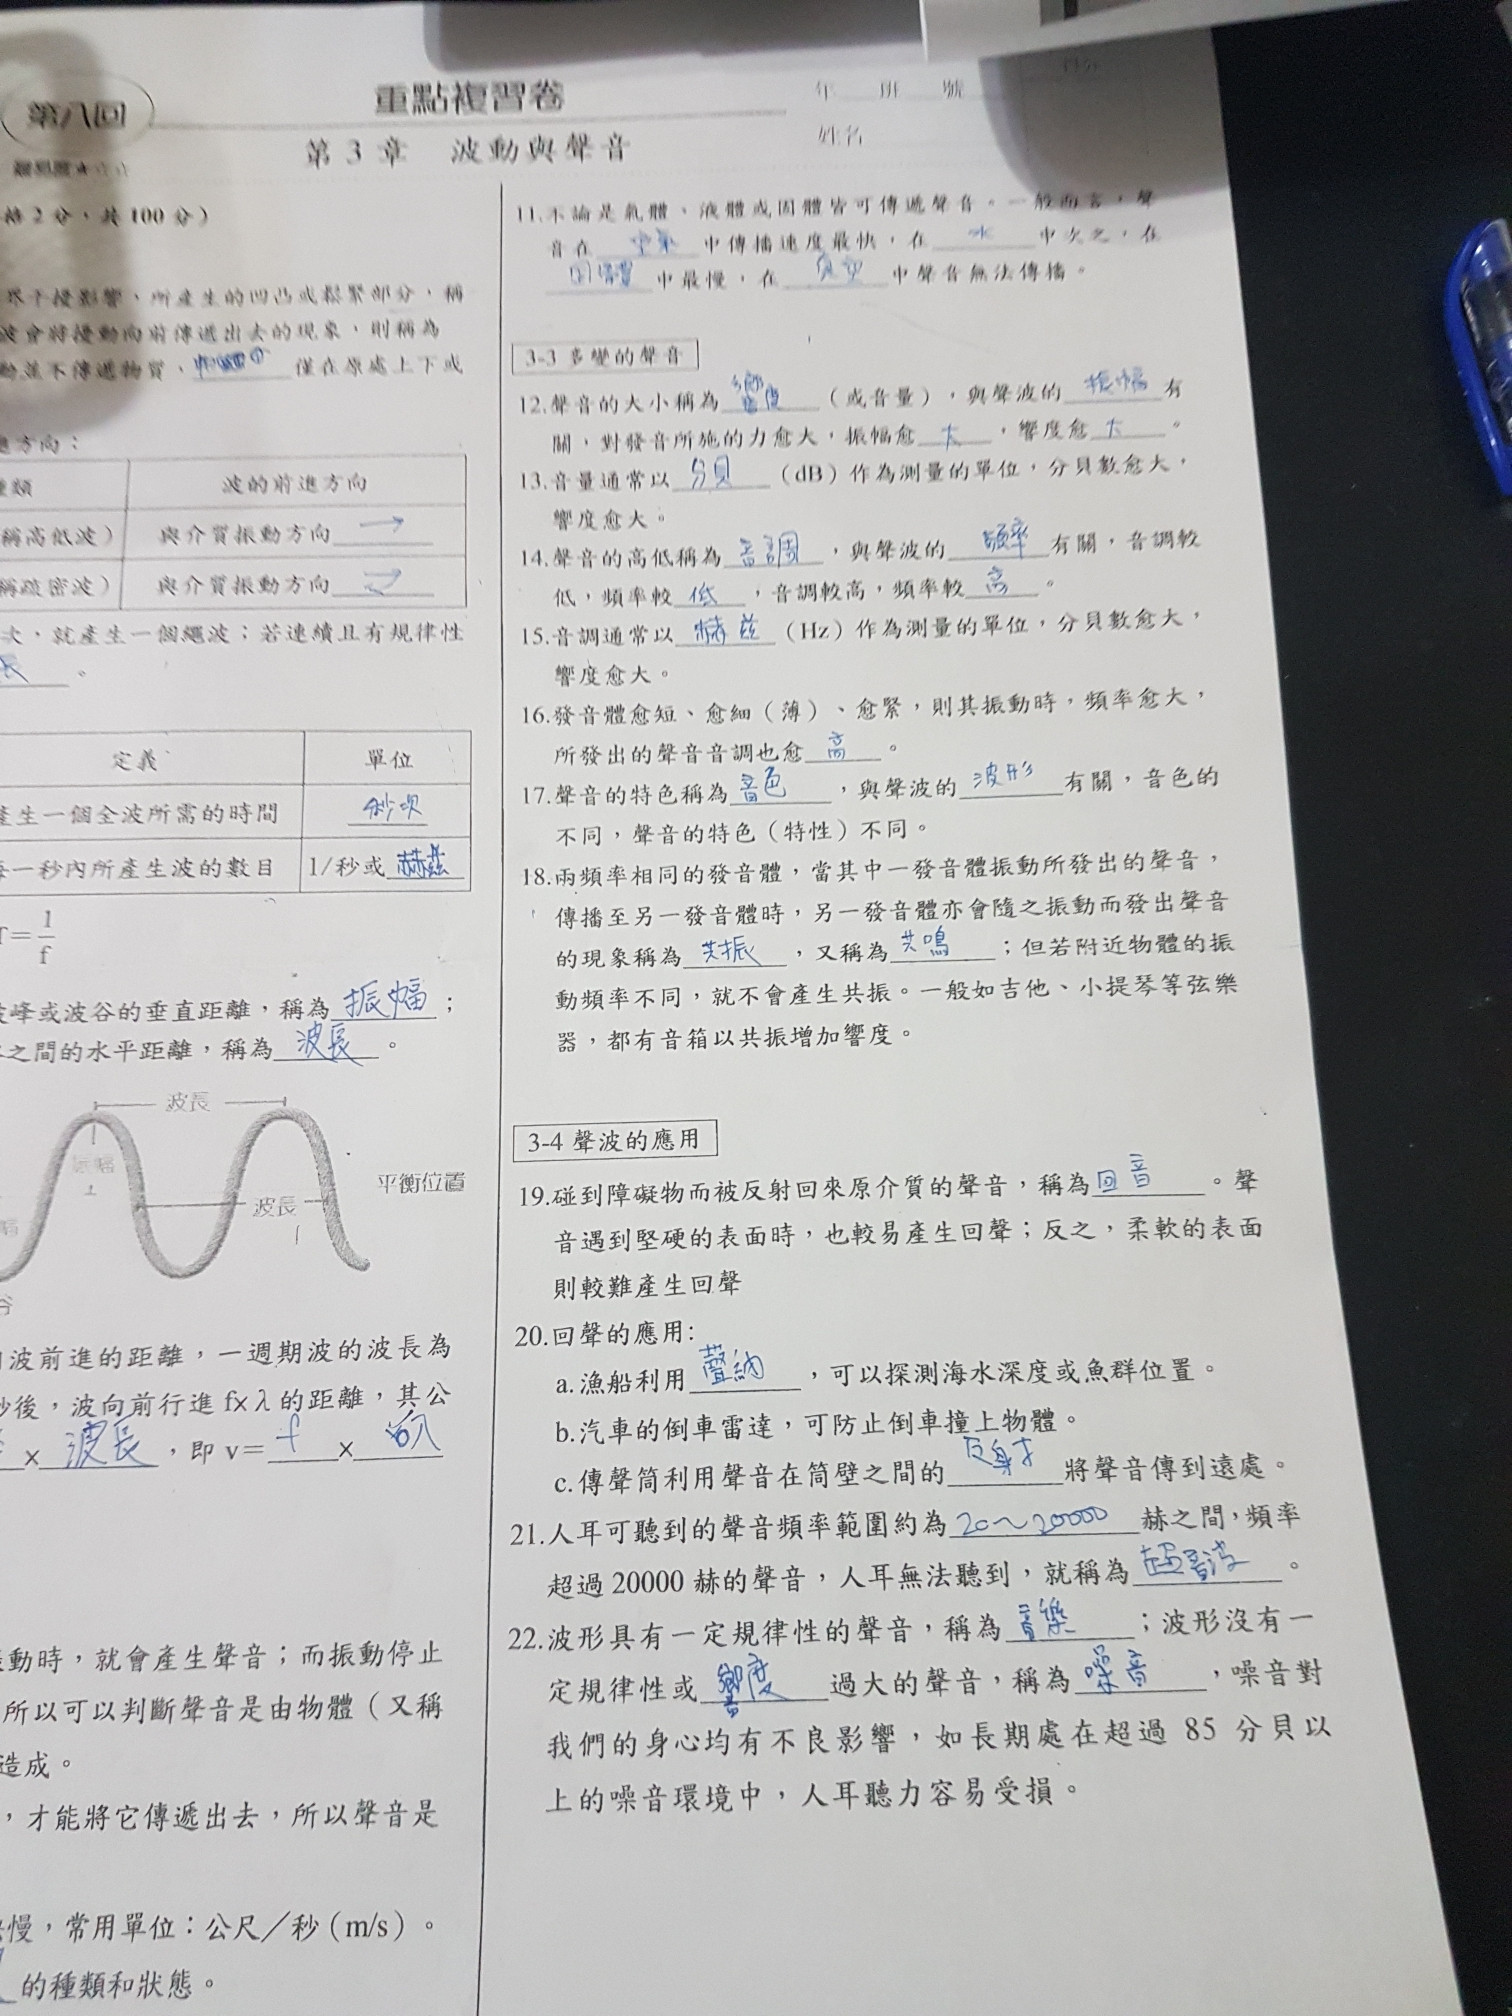 第八回
重點複習卷
年 班 號
第 3 章 波動與聲音
姓名
格 2 分，共 100 分）
界干擾影響，所產生的凹凸或鬆緊部分，稱
波會將擾動向前傳遞出去的現象，則稱為
動並不傳遞物質， 僅在原處上下或
進方向：
種類 波的前進方向
稱高低波） 與介質振動方向
稱疏密波） 與介質振動方向
次，就產生一個繩波；若連續且有規律性
長 。
定義 單位
產生一個全波所需的時間
每一秒內所產生波的數目 1/秒或 赫茲
T＝1/f
波峰或波谷的垂直距離，稱為 振幅 ；
之間的水平距離，稱為 波長 。
波長
振幅
平衡位置
波長
幅
谷
波前進的距離，一週期波的波長為
秒後，波向前行進 f×λ 的距離，其公
× 波長 ，即 v＝ f ×
振動時，就會產生聲音；而振動停止
所以可以判斷聲音是由物體（又稱
造成。
，才能將它傳遞出去，所以聲音是
快慢，常用單位：公尺／秒（m/s）。
的種類和狀態。
11.不論是氣體、液體或固體皆可傳遞聲音。一般而言，聲
音在 空氣 中傳播速度最快，在 水 中次之，在
固體 中最慢，在 真空 中聲音無法傳播。
3-3 多變的聲音
12.聲音的大小稱為 響度 （或音量），與聲波的 振幅 有
關，對發音所施的力愈大，振幅愈 大 ，響度愈 大 。
13.音量通常以 分貝 （dB）作為測量的單位，分貝數愈大，
響度愈大。
14.聲音的高低稱為 音調 ，與聲波的 頻率 有關，音調較
低，頻率較 低 ，音調較高，頻率較 高 。
15.音調通常以 赫茲 （Hz）作為測量的單位，分貝數愈大，
響度愈大。
16.發音體愈短、愈細（薄）、愈緊，則其振動時，頻率愈大，
所發出的聲音音調也愈 高 。
17.聲音的特色稱為 音色 ，與聲波的 波形 有關，音色的
不同，聲音的特色（特性）不同。
18.兩頻率相同的發音體，當其中一發音體振動所發出的聲音，
傳播至另一發音體時，另一發音體亦會隨之振動而發出聲音
的現象稱為 共振 ，又稱為 共鳴 ；但若附近物體的振
動頻率不同，就不會產生共振。一般如吉他、小提琴等弦樂
器，都有音箱以共振增加響度。
3-4 聲波的應用
19.碰到障礙物而被反射回來原介質的聲音，稱為 回音 。聲
音遇到堅硬的表面時，也較易產生回聲；反之，柔軟的表面
則較難產生回聲
20.回聲的應用：
a.漁船利用 聲納 ，可以探測海水深度或魚群位置。
b.汽車的倒車雷達，可防止倒車撞上物體。
c.傳聲筒利用聲音在筒壁之間的 反射 將聲音傳到遠處。
21.人耳可聽到的聲音頻率範圍約為 20～20000 赫之間，頻率
超過 20000 赫的聲音，人耳無法聽到，就稱為 超音波 。
22.波形具有一定規律性的聲音，稱為 音樂 ；波形沒有一
定規律性或 響度 過大的聲音，稱為 噪音 ，噪音對
我們的身心均有不良影響，如長期處在超過 85 分貝以
上的噪音環境中，人耳聽力容易受損。